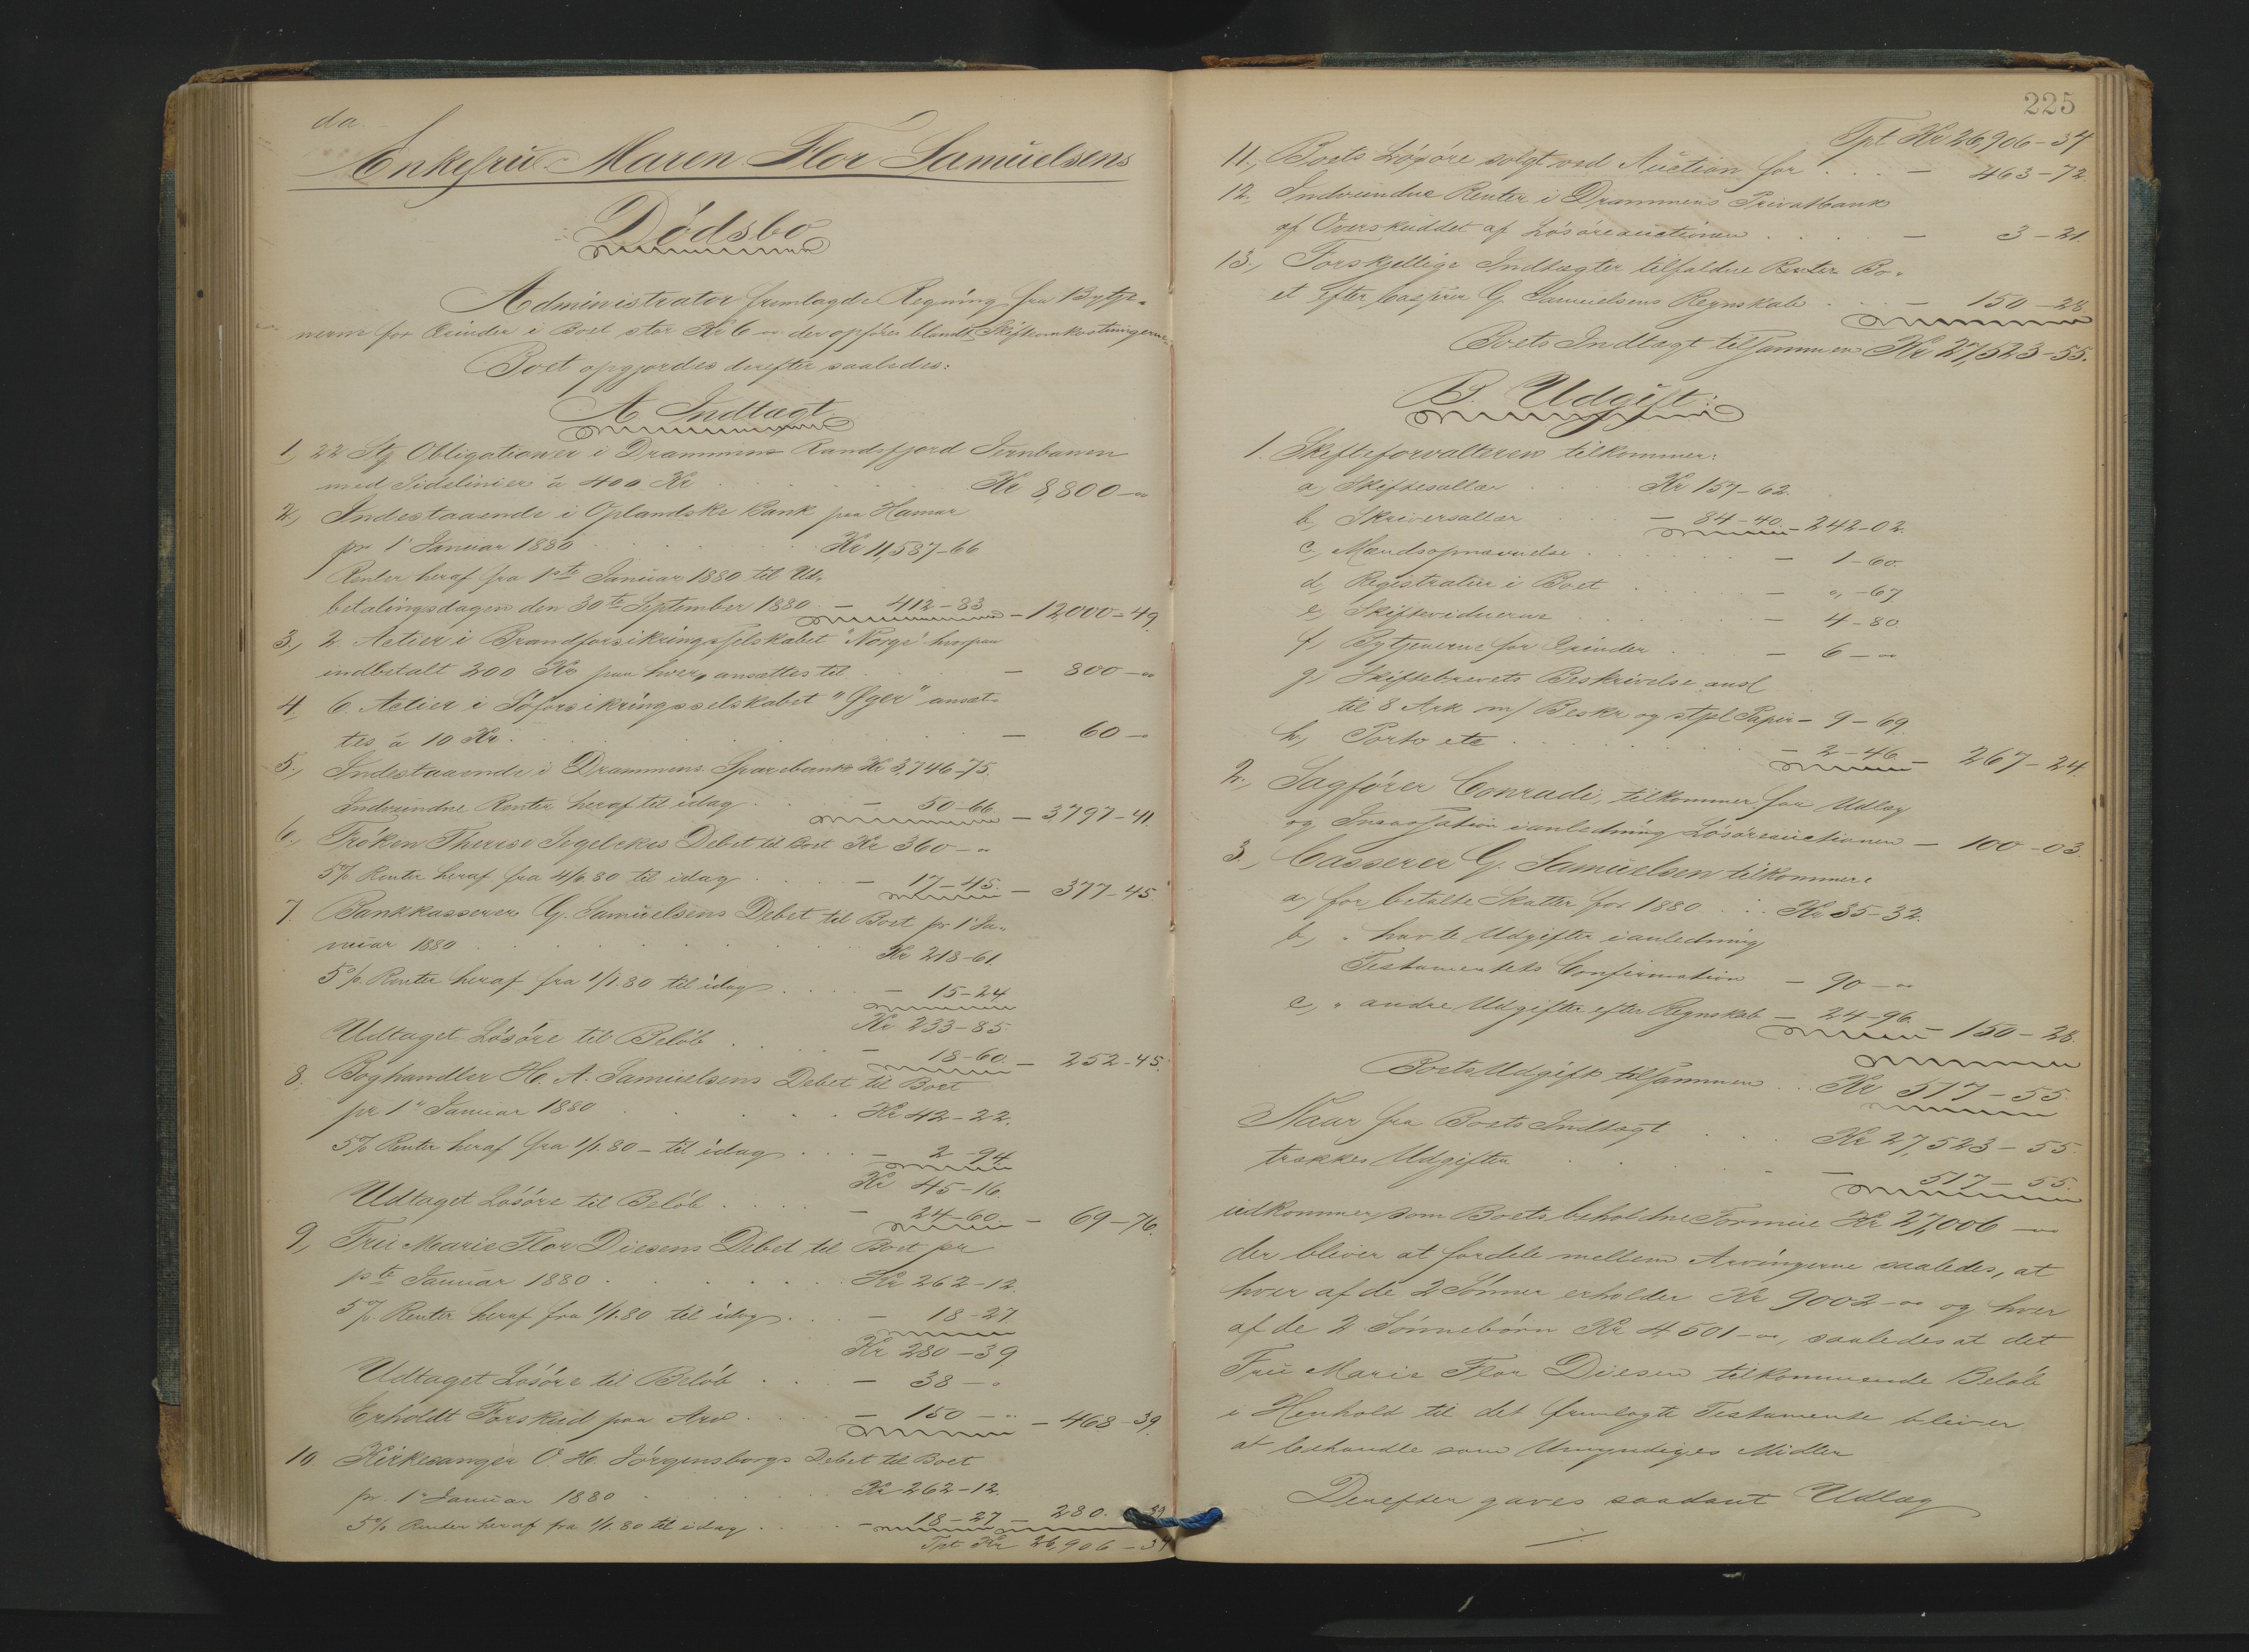 da.
Enkefrue Maren Flor Samuelsens
Dødsbo
Administrator fremlagde Regning fra Bytje-
nerne for Ærinder i Boet stor Kr 6 – der opføres blandt Skifteomkostningerne.
Boet opgjordes derefter saaledes:
A. Indtægt
1, 22 Stg Obligationer i Drammens Randsfjord Jernbanen
med Sidelinier á 400 Kr . . . Kr 8,800 –
2, Indestaaende i Oplandske Bank paa Hamar
pr 1' Januar 1880 . . . Kr 11,587–66
Renter heraf fra 1ste Januar 1880 til Ud-
betalingsdagen den 30te September 1880 – 412–83 – 12000–49.
3, 2 Actier i Brandforsikringsselskabet "Norge" hvorpaa
indbetalt 200 Kr paa hver, ansættes til . . – 800 –
4, 6. Actier i Söforsikringsselskabet "Æger" ansæt-
tes á 10 Kr . . . – 60 –
5, Indestaaende i Drammens Sparebank Kr 3,746–75.
Indvundne Renter heraf til idag . . – 50–66 – 3797–41.
6, Fröken Therese Segelckes Debet til Boet Kr 360 –
5% Renter heraf fra 4/6.80 til idag . . – 17–45. – 377–45
7. Bankkasserer G. Samuelsens Debet til Boet pr 1' Ja-
nuar 1880 . . . Kr 218–61.
5%. Renter heraf fra 1/1.80 til idag . . – 15–24
Kr 233–85.
Udtaget Lösöre til Belöb . . – 18–60. – 252–45.
8. Boghandler H. A. Samuelsens Debet til Boet
pr 1" Januar 1880 . . . Kr 42–22.
5% Renter heraf fra 1/1.80 – til idag . . – 2–94
Kr 45–16.
Udtaget Lösöre til Belöb . . – 24–60. – 69–76.
9, Frue Marie Flor Diesens Debet til Boet pr
1ste Januar 1880 . . . Kr 262–12.
5%. Renter heraf fra 1/1.80 til idag . . – 18–27.
Kr 280–39
Udtaget Lösöre til Belöb . . – 38 –
Erholdt Forskud paa Arv . . – 150 – – 468–39.
10 Kirkesanger O. H. Jörgensborgs Debet til Boet
pr. 1" Januar 1880 . . . Kr 262–12.
5% Renter heraf fra 1/1.80 til idag . . – 18–27 – 280.39
Tpt Kr 26,906–34
225
Tpt Kr 26,906–34
11, Boets Lösöre solgt ved Auction for . . . – 463–72.
12. Indvundne Renter i Drammens Privatbank
af Overskuddet af Lösöreauctionen . . . – 3–21.
13., Forskjellige Indtægter tilfaldne Renter Bo-
et efter Casserer G. Samuelsens Regnskab . . – 150–28.
Boets Indtægt tilsammen Kr 27,523–55.
B. Udgift:
1. Skifteforvalteren tilkommer:
a, Skiftesallær . . . Kr 157–62.
b, Skriversallær . . – 84–40. – 242–02.
c, Mændsopnævnelse . . . – 1–60.
d, Registratur i Boet . . . – „–67.
e, Skiftevidnerne . . . – 4–80.
f, Bytjenerne for Ærinder . . – 6 –
g, Skiftebrevets Beskrivelse ansl
til 8 Ark m/ Beskr og stpl Papir – 9–69.
h, Porto etc . . . – 2–46 – 267–24.
2., Sagförer Conradi, tilkommer for Udlæg
og Incassation i anledning Lösöreauctionen – 100–03.
3., Casserer G. Samuelsen tilkommer:
a, for betalte Skatter for 1880 . . Kr 35–32.
b, „ havte Udgifter i anledning
Testamentets Confirmation – 90 –
c, „ andre Udgifter efter Regnskab – 24–96. – 150–28.
Boets Udgift tilsammen . . Kr 517–55.
Naar fra Boets Indtægt . . . Kr 27,523–55.
trækkes Udgiften . . . – 517–55.
udkommer som Boets beholdne Formue Kr 27,006 –
der bliver at fordele mellem Arvingerne saaledes, at
hver af de 2 Sönner erholder Kr 9002 – og hver
af de 2 Sönnebörn Kr 4501 –, saaledes at det
Frue Marie Flor Diesen tilkommende Belöb
i Henhold til det fremlagte Testamente bliver
at behandle som Umyndiges Midler
Derefter gaves saadant Udlæg